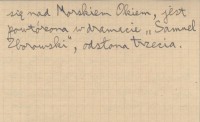 się nad Morskiem Okiem, jest
powtórzona w dramacie „Samuel
Zborowski", odsłona trzecia.